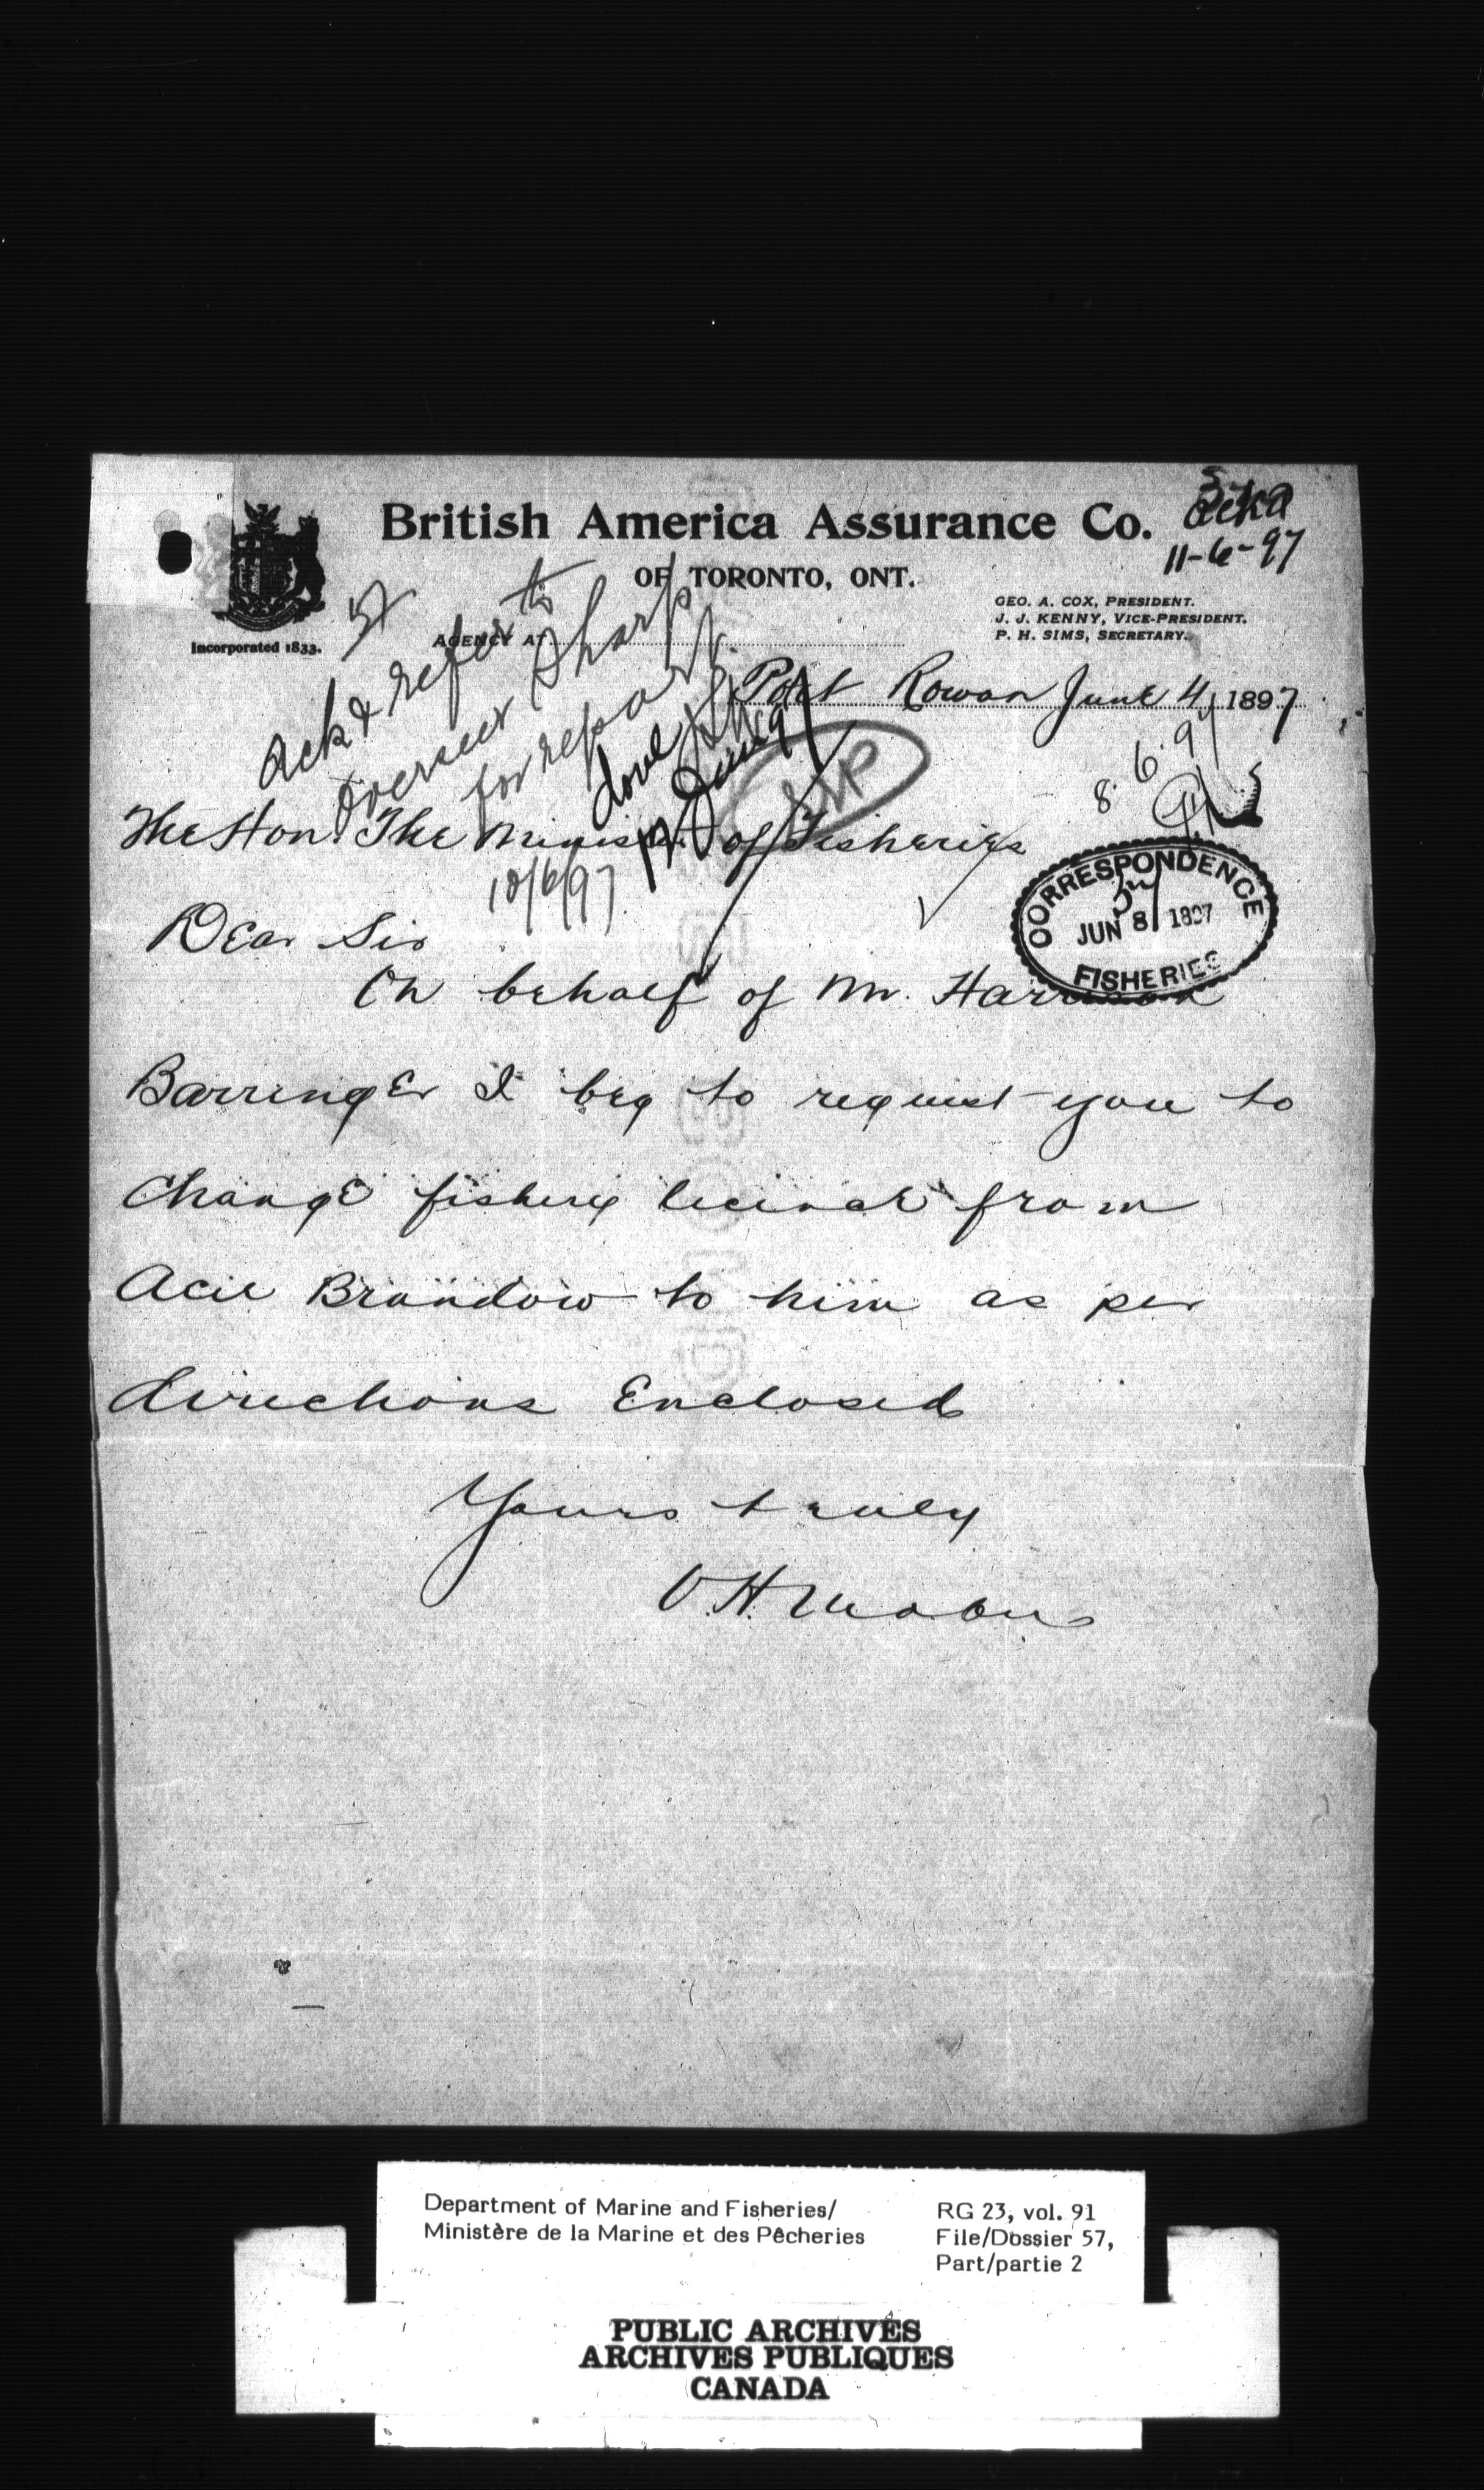 British America Assurance Co.
OF TORONTO, ONT.
Incorporated 1833.
GEO. A. COX, PRESIDENT.
J. J. KENNY, VICE-PRESIDENT.
P. H. SIMS, SECRETARY.
Ackd
11-6-97
AGENCY AT
57
Ack & refer to
Overseer Sharp
for report
10/6/97
done
Port Rowan June 4 1897
8.6.97
The Hon. The Minister of Fisheries
CORRESPONDENCE
57
JUN 8 1897
FISHERIES
Dear Sir
On behalf of Mr. Harrison
Barringer I beg to request you to
Change fishery licinse from
Acie Brandow to him as per
directions Enclosed
Yours truly
Department of Marine and Fisheries/
Ministère de la Marine et des Pêcheries
RG 23, vol. 91
File/Dossier 57,
Part/partie 2
PUBLIC ARCHIVES
ARCHIVES PUBLIQUES
CANADA